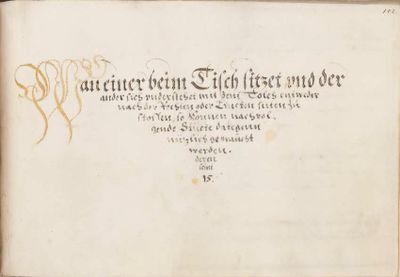 152.
Wan einer beim Tisch sitzet vnd der
ander sich vnderstehet mit dem Tolch entweder
nach der rechten oder Lincken seiten zu
stossen, so können nachvol,
gende Stücke dargegen
nützlich gebraucht
werden.
deren
seint
15.